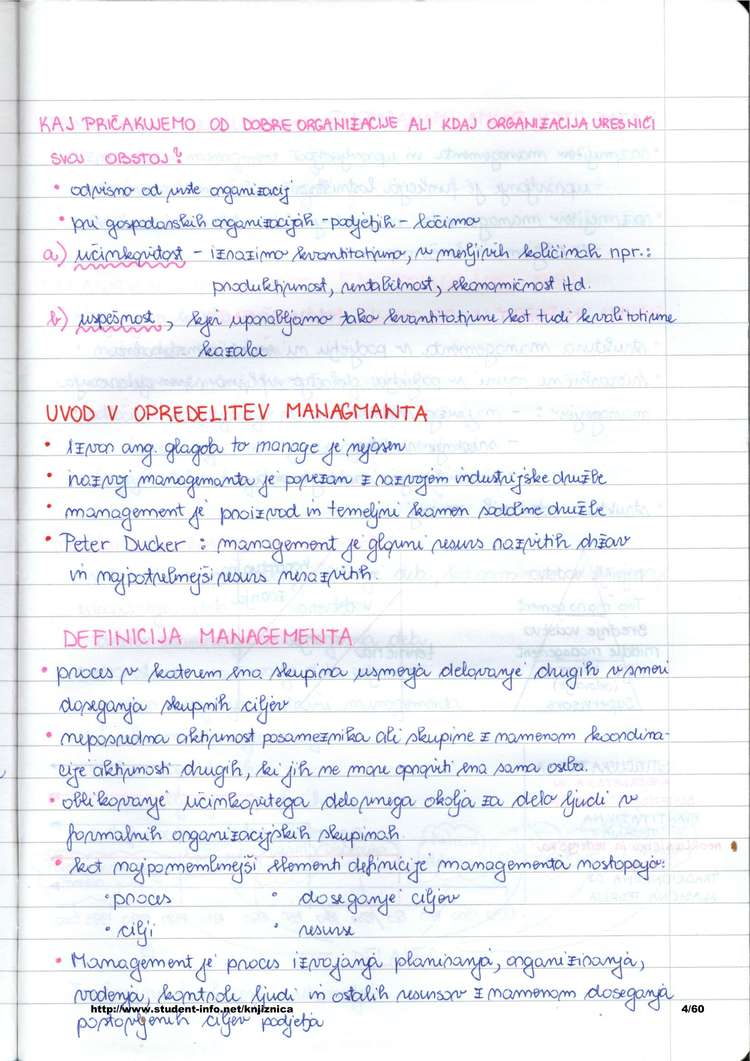 KAJ PRIČAKUJEMO OD DOBRE ORGANIZACIJE ALI KDAJ ORGANIZACIJA URESNIČI
SVOJ OBSTOJ?
• odvisno od vrste organizacij
• pri gospodarskih organizacijah - podjetjih - ločimo
a) učinkovitost - izrazimo kvantitativno, v merljivih količinah npr.:
produktivnost, rentabilnost, ekonomičnost itd.
b) uspešnost, kjer uporabljamo tako kvantitativne kot tudi kvalitativne
kazalce
UVOD V OPREDELITEV MANAGMANTA
• Izvor ang. glagola to manage je nejasen
• razvoj managementa je povezan z razvojem industrijske družbe
• management je proizvod in temeljni kamen sodobne družbe
• Peter Ducker : management je glavni resurs razvitih držav
in najpotrebnejši resurs nerazvitih.
DEFINICIJA MANAGEMENTA
• proces v katerem ena skupina usmerja delovanje drugih v smeri
doseganja skupnih ciljev
• neposredna aktivnost posameznika ali skupine z namenom koordina-
cije aktivnosti drugih, ki jih ne more opraviti ena sama oseba.
• oblikovanje učinkovitega delovnega okolja za delo ljudi v
formalnih organizacijskih skupinah.
• kot najpomembnejši elementi definicije managementa nastopajo:
• proces • doseganje ciljev
• cilji • resursi
• Management je proces izvajanja planiranja, organiziranja,
vodenja, kontrole ljudi in ostalih resursov z namenom doseganja
http://www.student-info.net/knjiznica 4/60
postavljenih ciljev podjetja